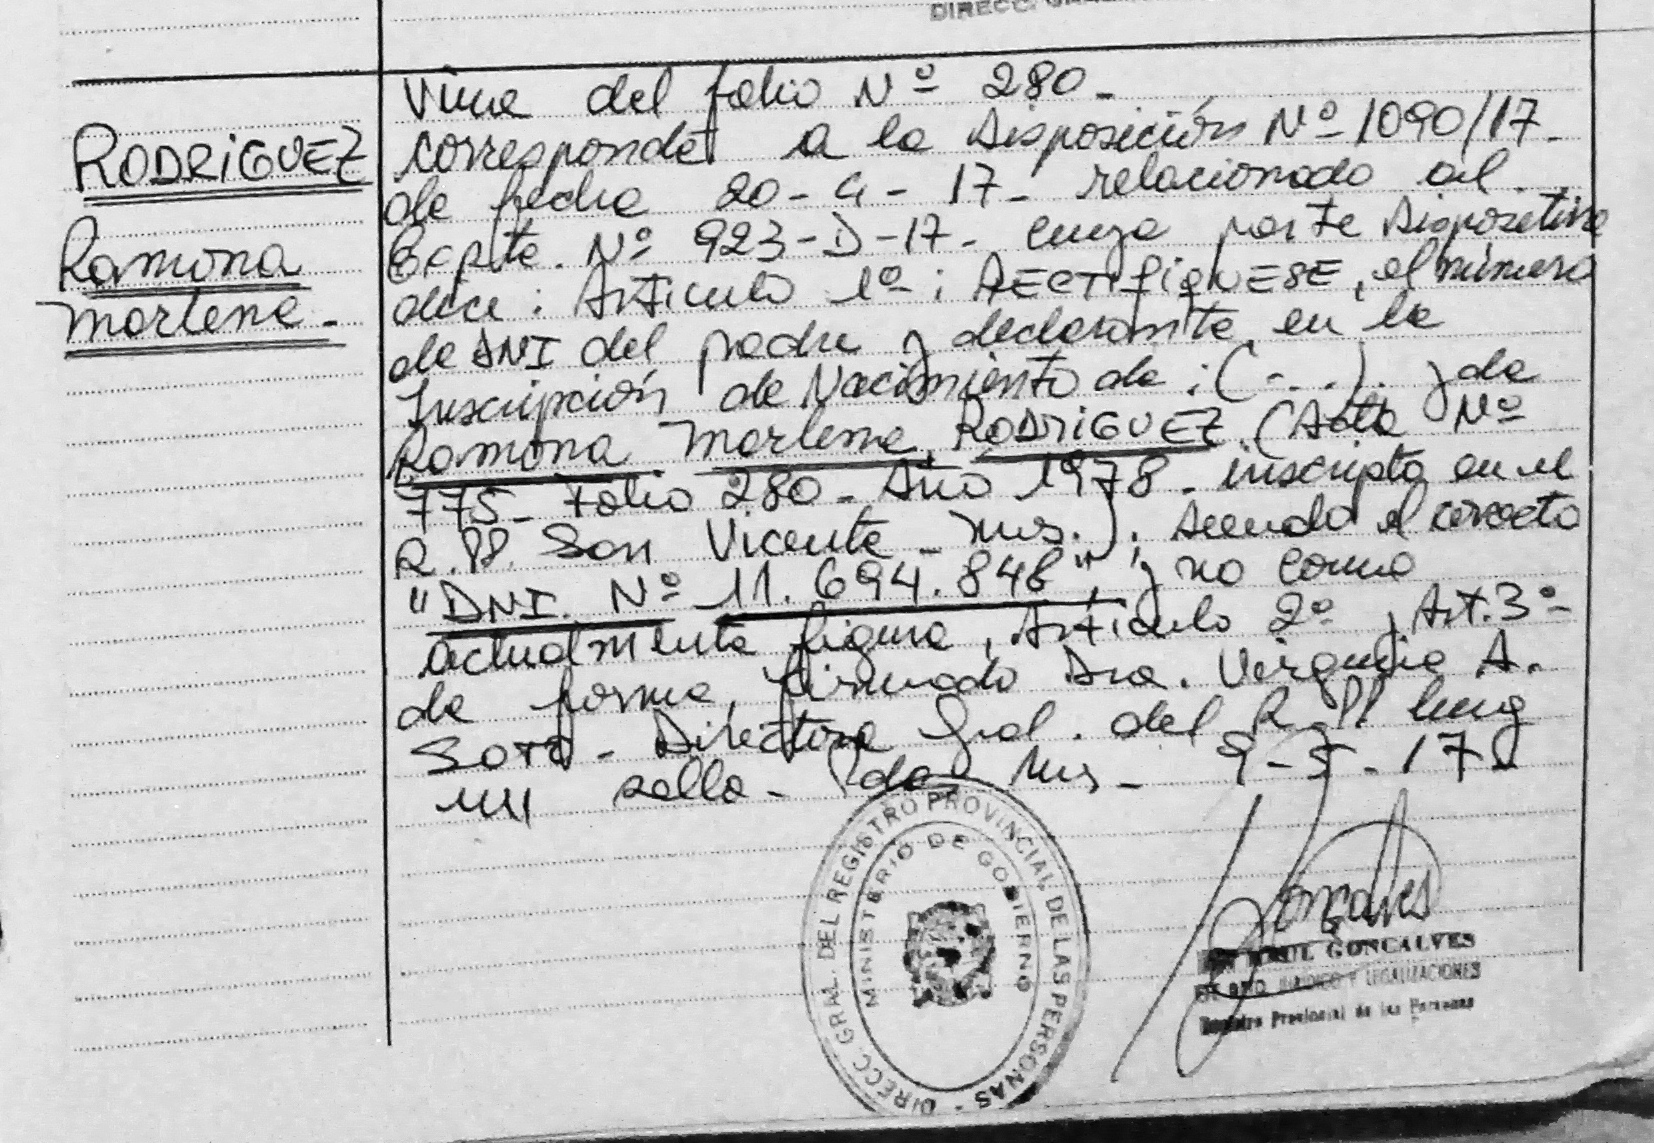 DIRECC. GRAL.
Viene del folio Nº 280.
RODRIGUEZ
Ramona
Marlene.
corresponde a la Disposición Nº 1090/17.
de fecha 20-4-17. relacionado al
Expte. Nº 923-D-17. cuya parte Dispositiva
dice: Artículo 1º: RECTIFIQUESE, el número
de DNI del padre y declarante en la
Inscripción de Nacimiento de: (...). y de
Ramona Marlene RODRIGUEZ (Acta Nº
775- Folio 280- Año 1978- inscripta en el
R.PP. San Vicente - Mns.), siendo el correcto
"DNI. Nº 11.694.846", y no como
actualmente figura, Artículo 2º, Art. 3º-
de forma, firmado Dra. Virginia A.
Soto- Directora Gral. del R.PP hay
un sello- Pdas Mns- 9-5-17
DIRECC. GRAL. DEL REGISTRO PROVINCIAL DE LAS PERSONAS -
MINISTERIO DE GOBIERNO
Gonçalves
GONCALVES
JURIDICO Y LEGALIZACIONES
Registro Provincial de las Personas